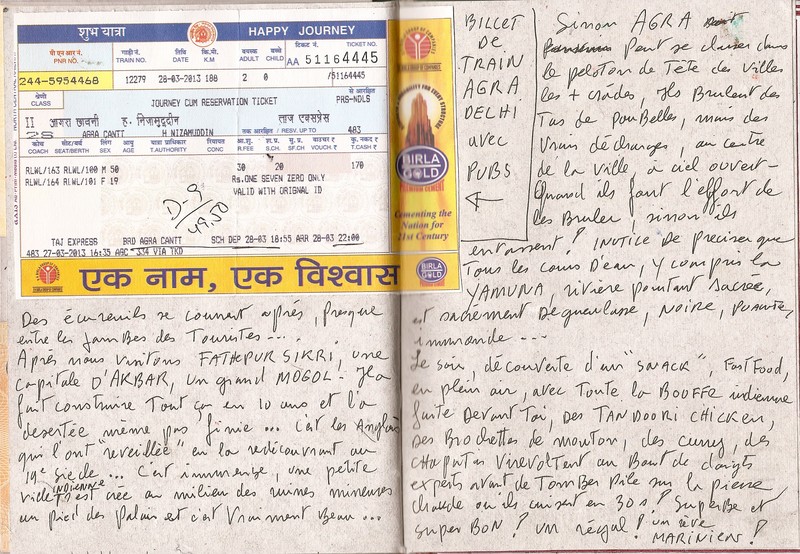 शुभ यात्रा
HAPPY JOURNEY
पी एन आर नं. गाड़ी नं. तिथि कि.मी. वयस्क बच्चे टिकट नं. TICKET NO.
PNR NO. TRAIN NO. DATE K.M. ADULT CHILD AA 51164445
244-5954468 12279 28-03-2013 188 2 0 /51164445
श्रेणी
CLASS JOURNEY CUM RESERVATION TICKET PRS-NDLS
II आगरा छावनी ह. निजामुद्दीन ताज एक्सप्रेस
2S AGRA CANTT H NIZAMUDDIN तक आरक्षित / RESV. UP TO 483
कोच सीट/बर्थ लिंग आयु यात्रा प्राधिकार रियायत आ.शु. सु.प्र. वाउचर कु. नकद रु.
COACH SEAT/BERTH SEX AGE T.AUTHORITY CONC R.FEE S.CH. SF.CH VOUCH.₹ T.CASH ₹
RLWL/163 RLWL/100 M 50 30 20 170
RLWL/164 RLWL/101 F 19 Rs.ONE SEVEN ZERO ONLY
VALID WITH ORIGNAL ID
D-9
49.50
TAJ EXPRESS BRD AGRA CANTT SCH DEP 28-03 18:55 ARR 28-03 22:00
483 27-03-2013 16:35 334 VIA TKD
एक नाम, एक विश्वास
BIRLA
GOLD
PREMIUM CEMENT
Cementing the
Nation for
21st Century
BIRLA
GOLD
BILLET
DE
TRAIN
AGRA
DELHI
avec
PUBS
←
Des écureuils se courent après, presque
entre les jambes des Touristes....
Après nous visitons FATHEPUR SIKRI, une
capitale D'AKBAR, un grand MOGOL! Il a
fait construire Tout ça en 10 ans et l'a
desertée même pas finie... c'est les Anglais
qui l'ont "reveillée" en la redécouvrant au
19e siècle... C'est immense, une petite
ville INDIENNE s'est créée au milieu des ruines
au pied des Palais et c'est Vraiment Beau...
Sinon AGRA
Peut se classer dans
le peloton de Tête des Villes
les + crades, Ils Brulent des
Tas de Poubelles, mais des
Vrais décharges, au centre
de la ville à ciel ouvert-
Quand ils font l'effort de
les Bruler, sinon ils
entassent! INUTILE De preciser que
Tous les cours D'eau, y compris la
YAMUNA, rivière pourtant sacrée,
est sacrement Degueulasse, NOIRE, PUANTE,
immonde...
Le soir, découverte d'un "SNACK", FastFood,
en plein air, avec Toute la BOUFFE indienne
faite Devant Toi, Des TANDOORI CHICKEN,
Des Brochettes de mouton, des curry, des
CHAPATIS Virevoltant au Bout de doigts
experts avant de TomBer Pile sur la pierre
chaude ou ils cuisent en 30 s! SuperBe et
super BON! Un régal! un rêve
MARINIENS!